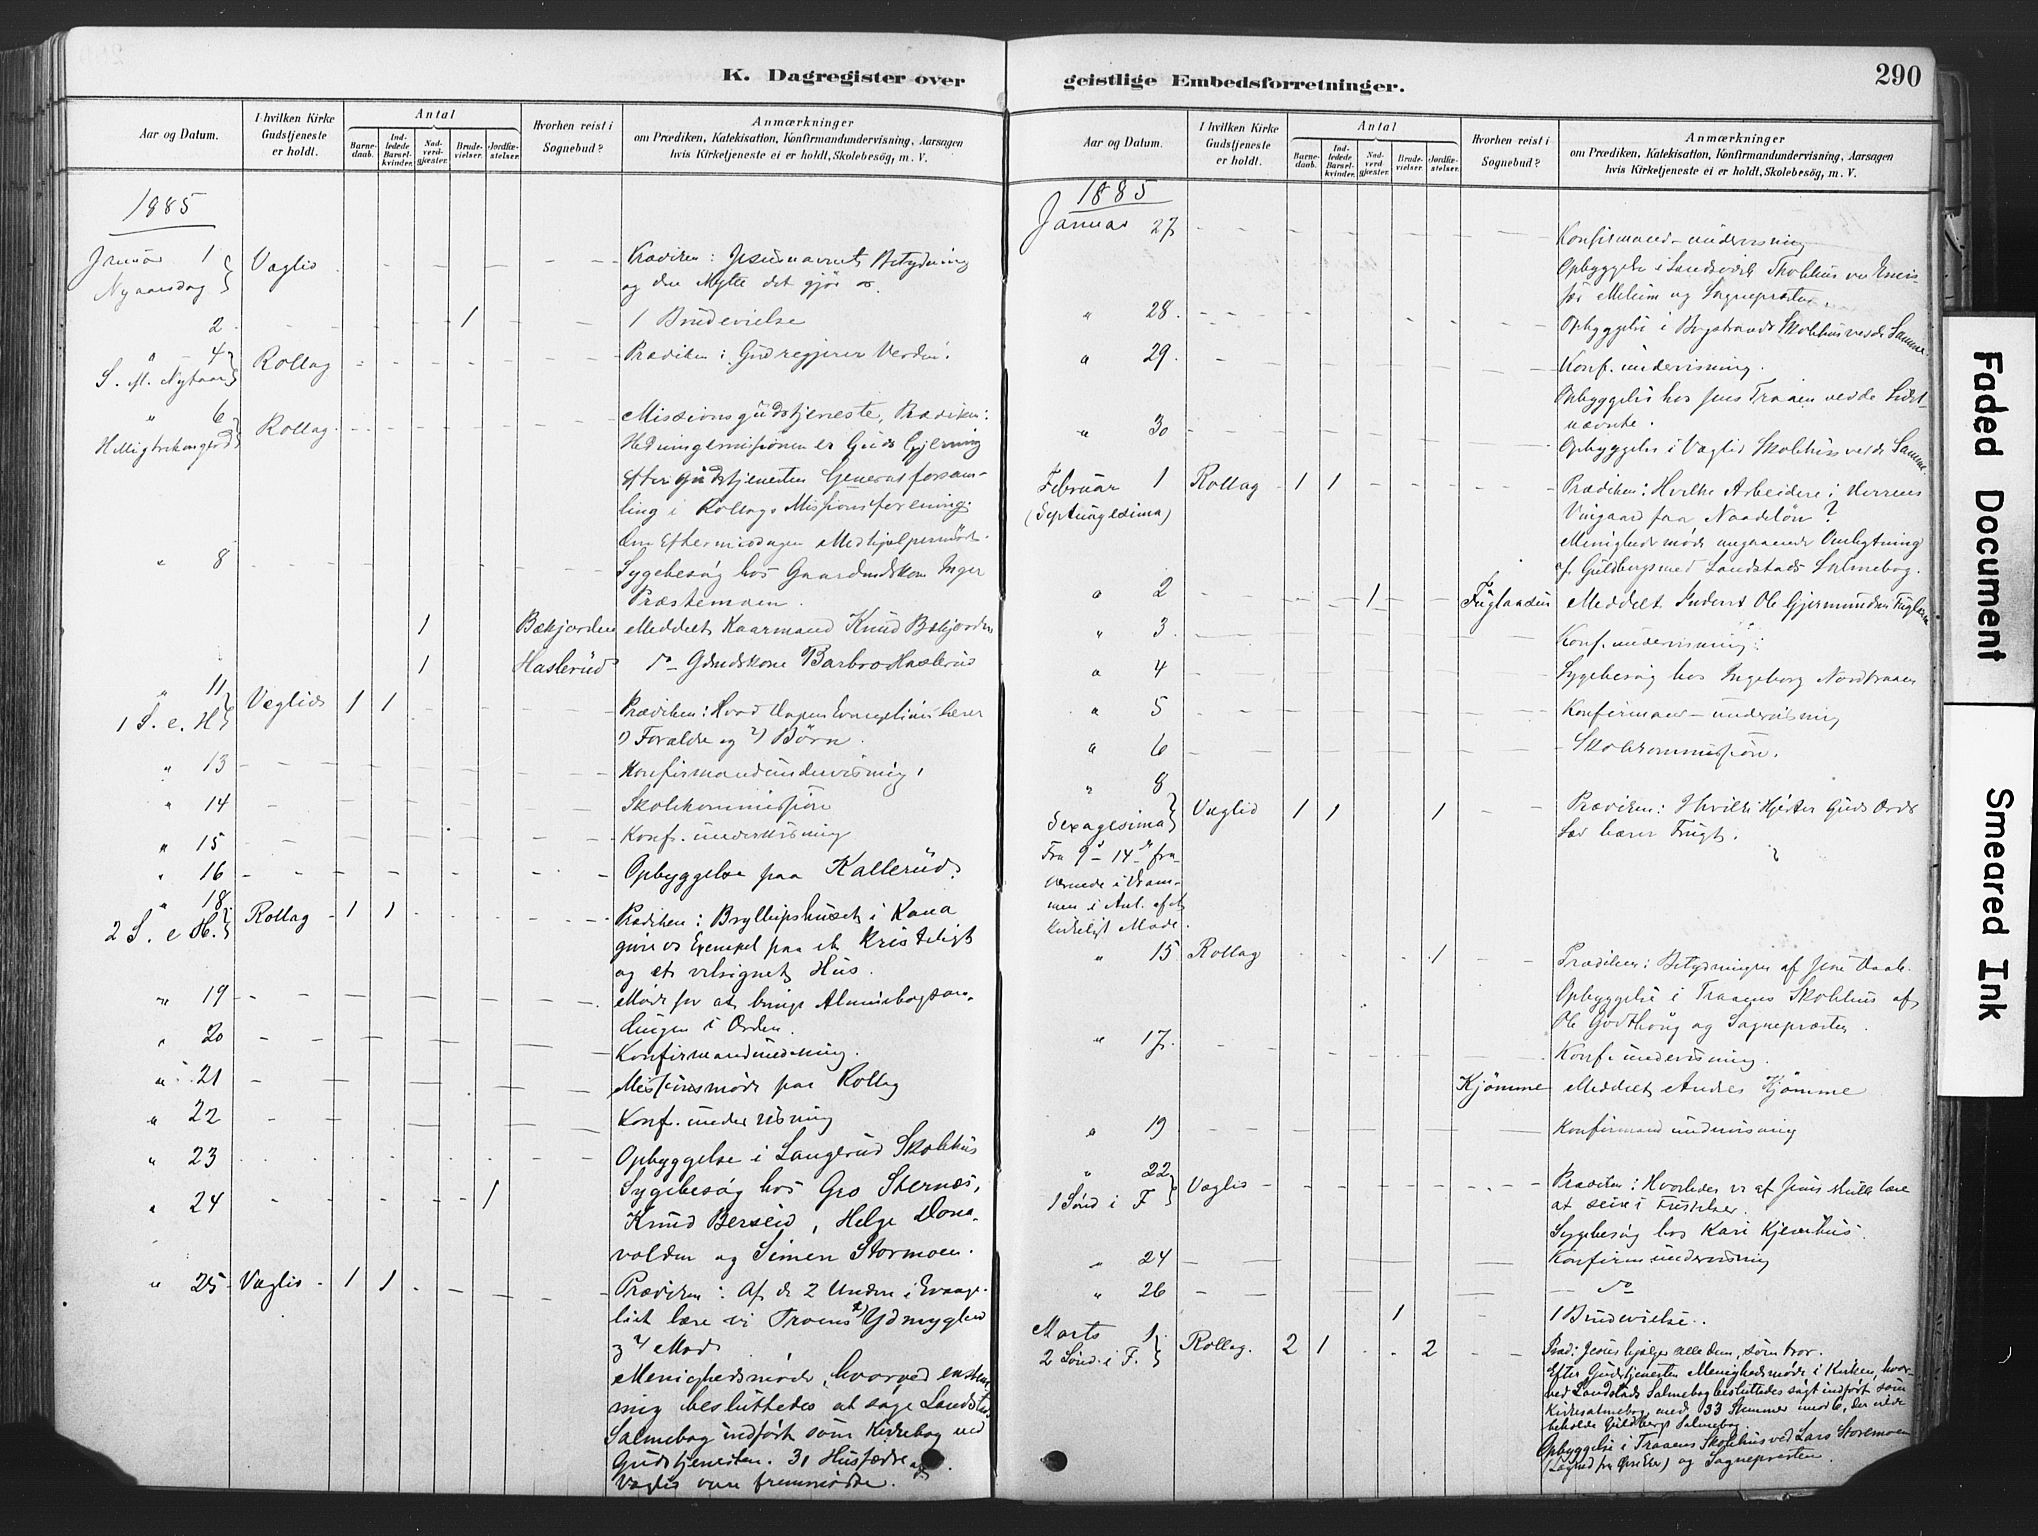 K. Dagregister over
Aar og Datum.
I hvilken Kirke Gudstjeneste er holdt.
Antal
Barnedaab.
Indledede Barselkvinder.
Nadverdgjester.
Brudevielser.
Jordfæstelser.
Hvorhen reist i Sognebud?
Anmærkninger
om Prædiken, Katekisation, Konfirmandundervisning, Aarsagen
hvis Kirketjeneste ei er holdt, Skolebesög, m. V.
1885
Januar 1 Nyaarsdag Væglid Prædiken: Jesunavnets Betydning
og den Nytte det gjör os.
2 1 1 Brudevielse
4 S. ef. Nytaar Rollag Prædiken: Gud regjerer Verden.
" 6 Helligtrekongersd Rollag. Missionsgudstjeneste, Prædiken:
Hedningemissionen er Guds Gjerning
Efter Gudstjenesten Generalforsam-
ling i Rollags Missionsforening.
Om Eftermiddagen Medhjelpermöde.
" 8 Sygebesög hos Gaardmdskone Inger
Præstemoen.
1 Bækjorden Meddelt Kaarmand Knud Bækjorden
1 Haslerud do Gdmdskone Barbro Haslerud
" 11 1 S. e. H Væglid 1 1 Prædiken: Hvad Dagens Evangelium lærer
1) Forældre og 2) Börn.
" 13 Konfirmandundervisning.
" 14 Skolekommission
" 15 Konf. undervisning
" 16 Opbyggelse paa Kallerud.
" 18. 2 S. e H. Rollag 1 1 Prædiken: Bryllupshuset i Kana
give os Exempel paa et Kristeligt
og et velsignet Hus.
" 19 Möde for at bringe Almuebogsam-
lingen i Orden.
" 20 Konfirmandundervisning.
" 21 Missionsmöde paa Rollag
" 22 Konf. undervisning
" 23 Opbyggelse i Langerud Skolehus
" 24 1 Sygebesög hos Gro Sternæs,
Knud Berseid, Helge Dona-
volden og Simen Stormoen.
" 25 Væglid 1 1 Prædiken: Af de 2 Undere i Evange-
liet lære vi Troens 1) Ydmyghed
og 2) Mod
Menighedsmöde, hvorved enstem-
mig besluttedes at söge Landstads
Salmebog indfört som Kirkebog ved
Gudstjenesten. 31 Husfædre af
Væglid vare fremmödte.
geistlige Embedsforretninger.
290
Aar og Datum.
I hvilken Kirke Gudstjeneste er holdt.
Antal
Barnedaab.
Indledede Barselkvinder.
Nadverdgjester.
Brudevielser.
Jordfæstelser.
Hvorhen reist i Sognebud?
Anmærkninger
om Prædiken, Katekisation, Konfirmandundervisning, Aarsagen
hvis Kirketjeneste ei er holdt, Skolebesög, m. V.
1885
Januar 27 Konfirmand-undervisning
Opbyggelse i Landsverk Skolehus ved Emis-
sær Melum og Sognepræsten.
" 28. Opbyggelse i Bogstrands Skolehus ved de Samme.
" 29. Konf. undervisning.
Opbyggelse hos Jens Traaen ved de Sidst-
nævnte.
" 30 Opbyggelse i Væglid Skolehus ved de Samme.
Februar 1 (Septuagesima) Rollag 1 1 Prædiken: Hvilke Arbeidere i Herrens
Vingaard faa Naadelön?
Menighedsmöde angaaende Ombytning
af Guldbergs med Landstads Salmebog.
" 2 1 Fuglanden Meddelt Inderst Ole Gjermundsen Fuglan
" 3 Konf. undervisning.
" 4 Sygebesög hos Ingeborg Nordtraaen
" 5 Konfirmand-undervisning
" 6 Skolekommission.
" 8 Sexagesima Væglid 1 1 1 Prædiken: I hvilke Hjerter Guds Ords
Sæd bærer Frugt.
Fra 9de-14de fra-
værende i Dram-
men i Anl. af et
Kirkeligt Möde.
" 15 Rollag 1 Prædiken: Betydningen af Jesu Daab.
Opbyggelse i Traaens Skolehus af
Ole Godthaug og Sognepræsten.
" 17. Konf. undervisning.
Kjömme Meddelt Anders Kjömme
" 19 Konfirmandundervisning
" 22 1 Sönd i F Væglid Prædiken: Hvorledes vi af Jesus skulle lære
at seire i Fristelser.
Sygebesög hos Kari Kjemhus.
" 24 Konfirm. undervisning
" 26 do
1 1 Brudevielse.
Marts 1. 2 Sönd. i F. Rollag. 2 1 2 Præd: Jesus hjælper alle dem, som tror.
Efter Gudstjenesten Menighedsmöde i Kirken, hvor-
ved Landstads Salmebog besluttedes sögt indfört som
Kirkesalmebog med 33 Stemmer mod 6, der vilde
beholde Guldbergs Salmebog.
Opbyggelse i Traaens Skolehus ved Lars Storemoen
og Sognepræsten.
Faded Document
Smeared Ink